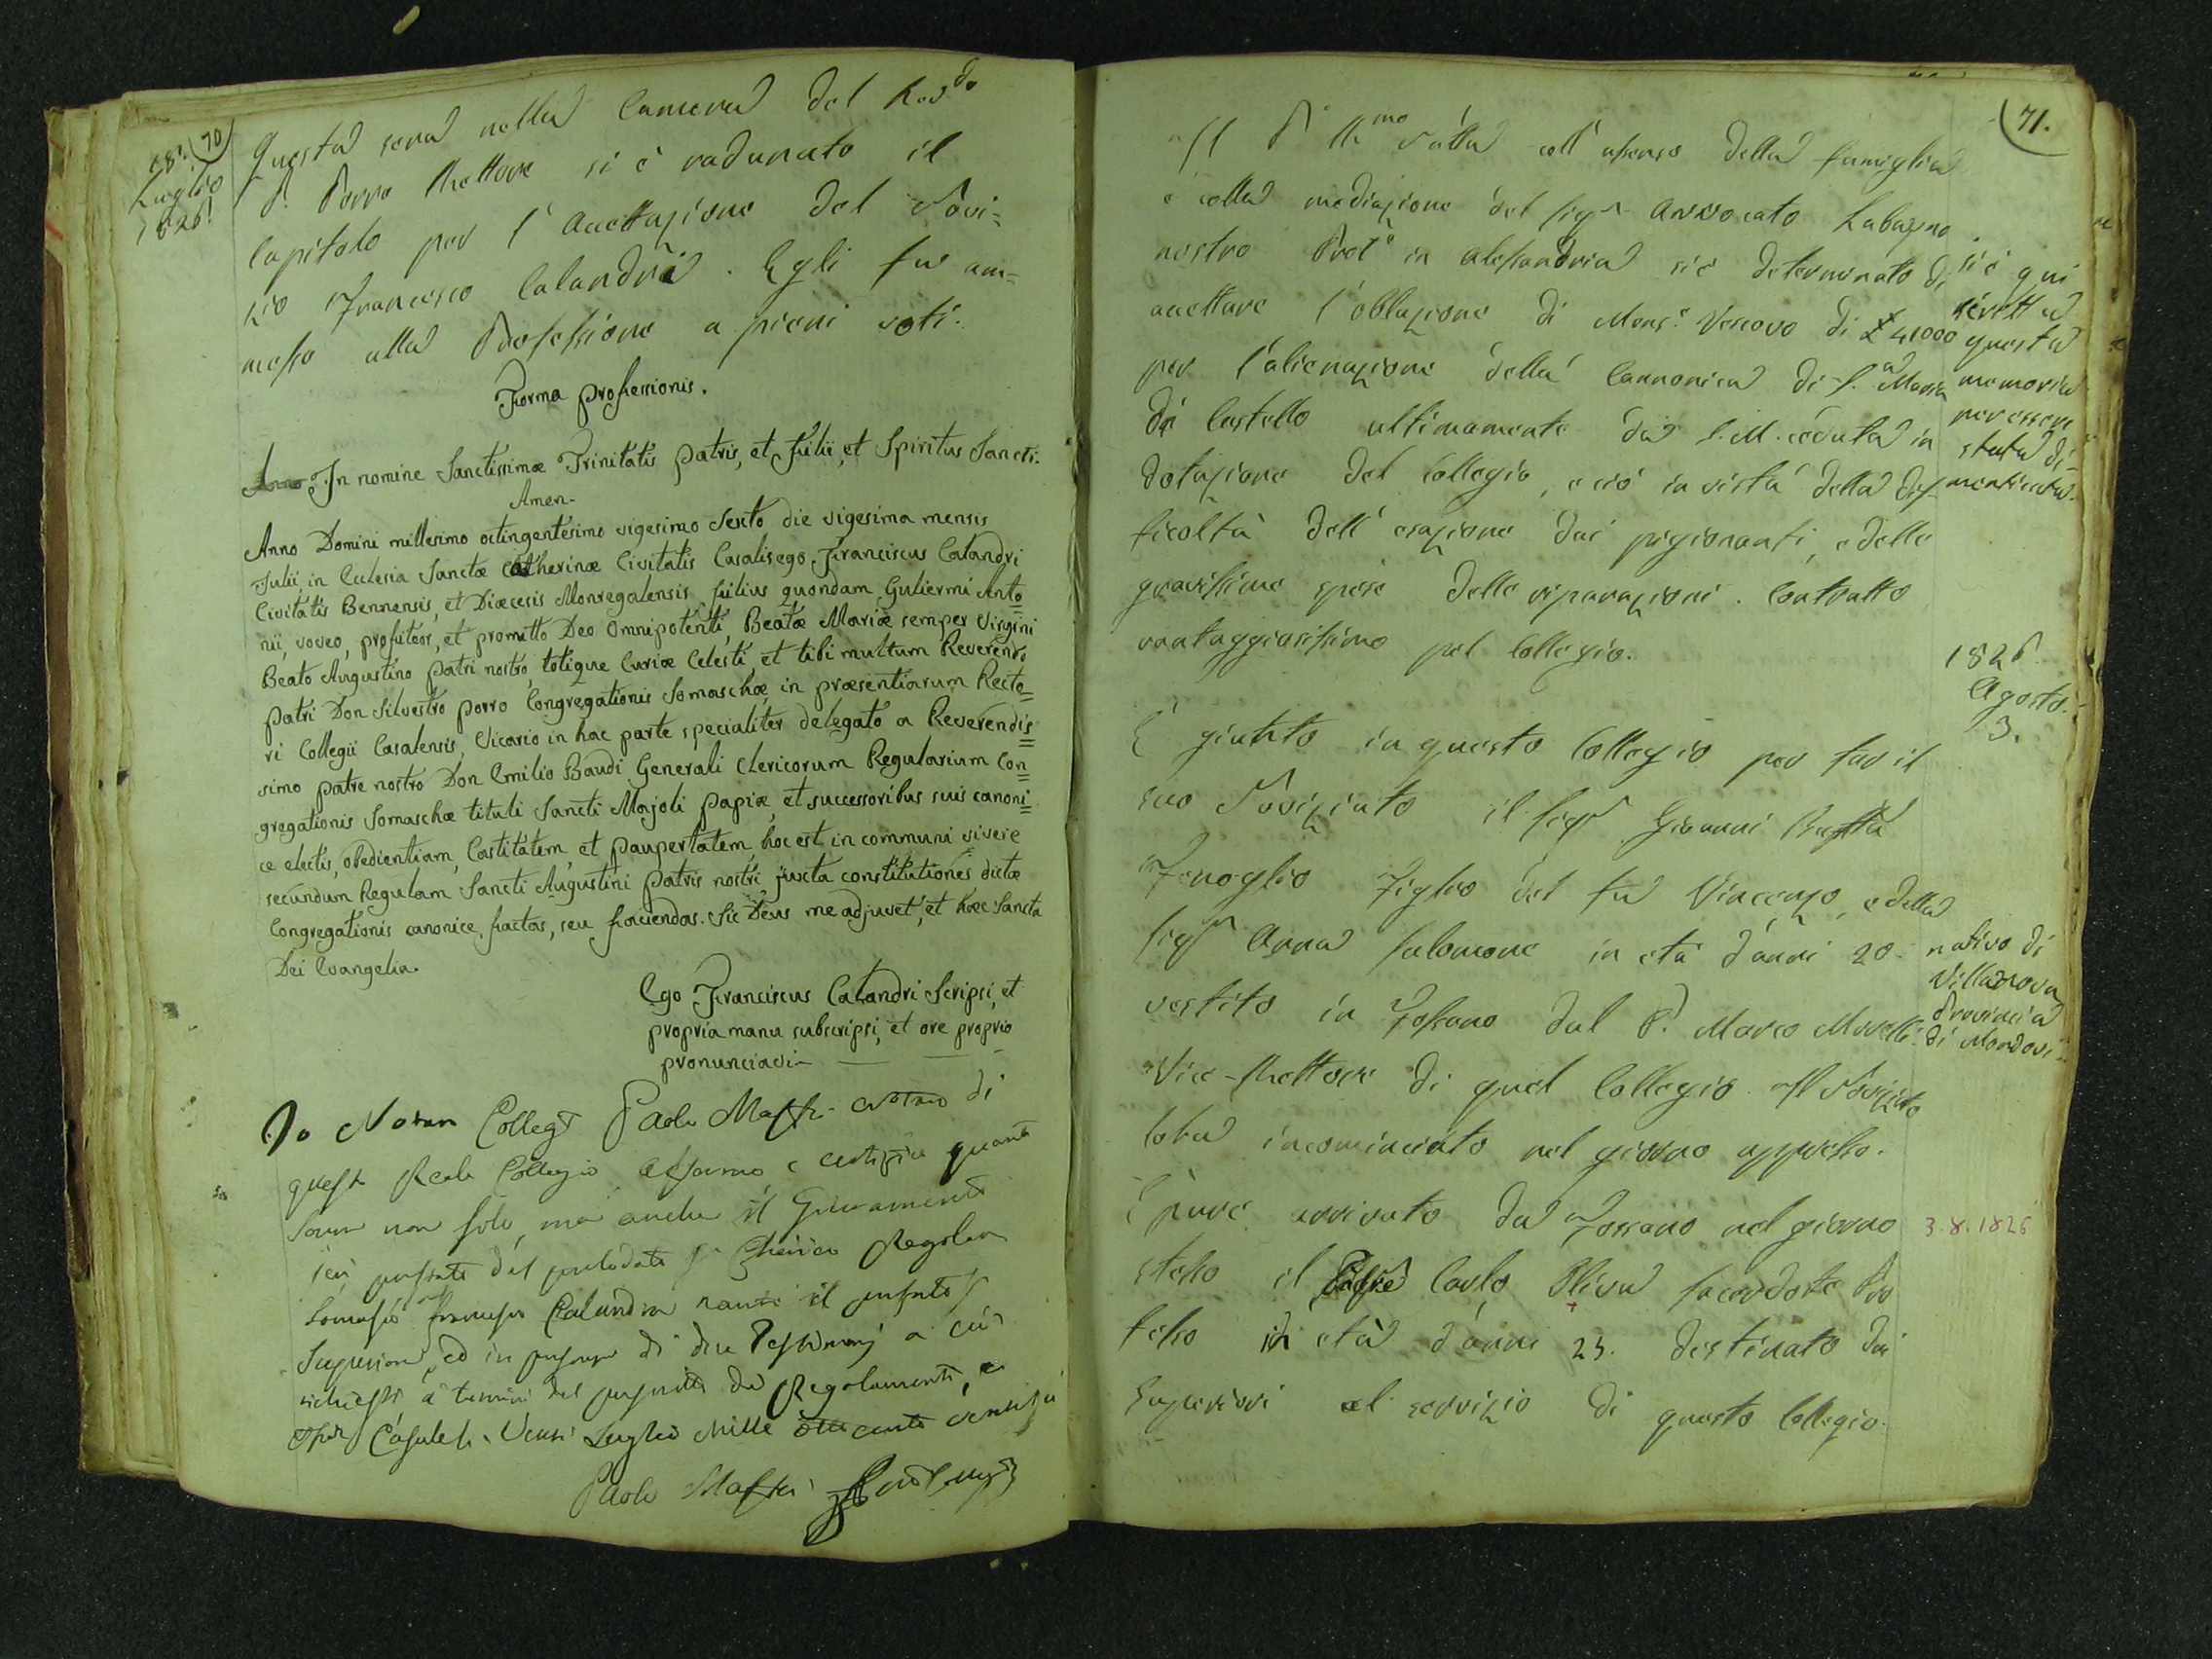 (70)
18.
Luglio
1826.
Questa sera nella Camera del Rev.do
P. Porro Rettore si è radunato il
Capitolo per l'Accettazione del Novi=
zio Francesco Calandri. Egli fu am=
messo alla Professione a pieni voti.
Forma professionis.
Anno In nomine Sanctissimæ Trinitatis Patris, et Filii, et Spiritus Sancti.
Amen.
Anno Domini millesimo octingentesimo vigesimo Sexto die vigesima mensis
Julii, in Ecclesia Sanctæ Catherinæ Civitatis Casalis ego Franciscus Calandri
Civitatis Bennensis, et Diæcesis Monregalensis filius quondam Guliermi Anto=
nii, voveo, profiteor, et promitto Deo Omnipotenti, Beatæ Mariæ semper Virgini
Beato Augustino Patri nostro, totique Curiæ Celesti, et tibi multum Reverendo
Patri Don Silvestro Porro Congregationis Somaschæ in præsentiarum Recto=
ri Collegii Casalensis, Vicario in hac parte specialiter delegato a Reverendis=
simo Patre nostro Don Emilio Baudi Generali Clericorum Regularium Con=
gregationis Somaschæ tituli Sancti Majoli Papiæ, et successoribus suis canoni=
ce electis, obedientiam, Castitatem, et Paupertatem, hoc est in communi vivere
secundum Regulam Sancti Augustini Patris nostri, juxta constitutiones dictæ
Congregationis canonice factas, seu faciendas. Sic Deus me adjuvet, et hæc Sancta
Dei Evangelia.
Ego Franciscus Calandri Scripsi, et
propria manu subscripsi, et ore proprio
pronunciavi
Io Collegt Paolo di
quest Reale Collegio affermo, e certifico quanto
sovra non solo, ma anche il Giuramento
dal prelodato Chierico Regolare
Somasco Francesco Calandri nanti il
Superiore, ed in di due Testimonj a ciò
richiesti a termini del da Regolamenti, e
Casale li Venti Luglio Mille otto cento ventisei
Paolo
(71.)
Il P. Rett.re coll'assenso della famiglia
e colla mediazione del sig.r Avvocato
nostro in Alessandria si è determinato di
accettare l'oblazione di Mons.r Vescovo di £ 41000
per l'alienazione della Cannonica di S.a Maria
di Castello ultimamente da S.M. ceduta in
dotazione del Collegio, e ciò in vista della dif=
ficoltà dell'esazione dai pigionanti, e delle
gravissime spese delle riparazioni. Contratto
vantaggiosissimo pel Collegio.
si è qui
scritta
questa
memoria
per essere
stata di=
menticata.
1826.
Agosto.
3.
È giunto in questo Collegio per far il
suo Noviziato il sig.r Giovanni Batta
Fenoglio Figlio del fu Vincenzo, e della
sig.ra Anna Salomone in età d'anni 20.
nativo di
Villanova
Provincia
di Mondovi
vestito in Fossano dal P. Marco Morelli
Vice-Rettore di quel Collegio. Il Noviziato
lo ha incominciato nel giorno appresso.
È pure arrivato da Fossano nel giorno
3.8.1826
stesso il Padre Carlo Oliva sacerdote Pro
fesso in età d'anni 23. destinato dai
Superiori al servizio di questo Collegio.